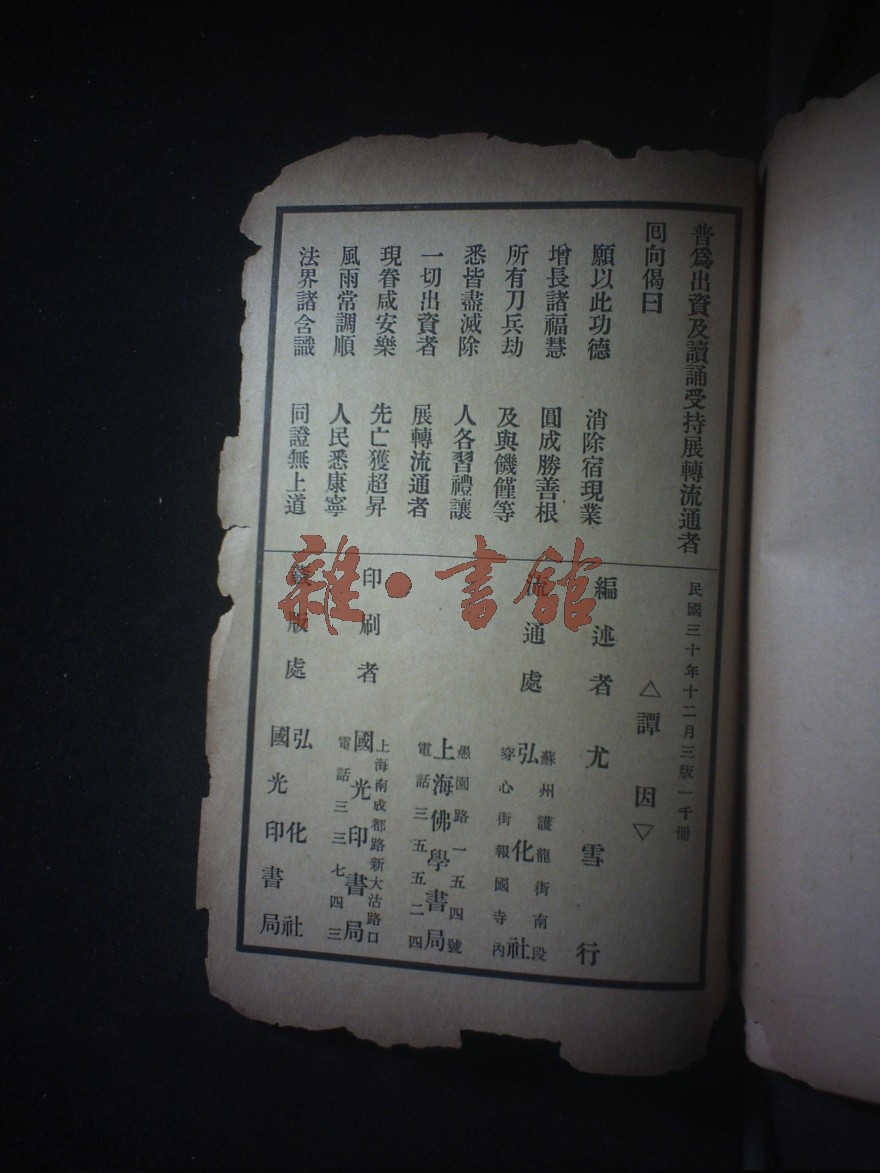 普爲出資及讀誦受持展轉流通者
回向偈曰
願以此功德　消除宿現業
增長諸福慧　圓成勝善根
所有刀兵劫　及與饑饉等
悉皆盡滅除　人各習禮讓
一切出資者　展轉流通者
現眷咸安樂　先亡獲超昇
風雨常調順　人民悉康寧
法界諸含識　同證無上道
民國三十年十二月三版一千冊
△譚因▽
編述者　尤雪行
流通處
蘇州護龍街南段
弘化社
穿心街報國寺內
愚園路一五四號
上海佛學書局
電話三五五二四
印刷者
上海南成都路新大沽路口
國光印書局
電話三三七四三
版處
弘化社
國光印書局
雜·書館